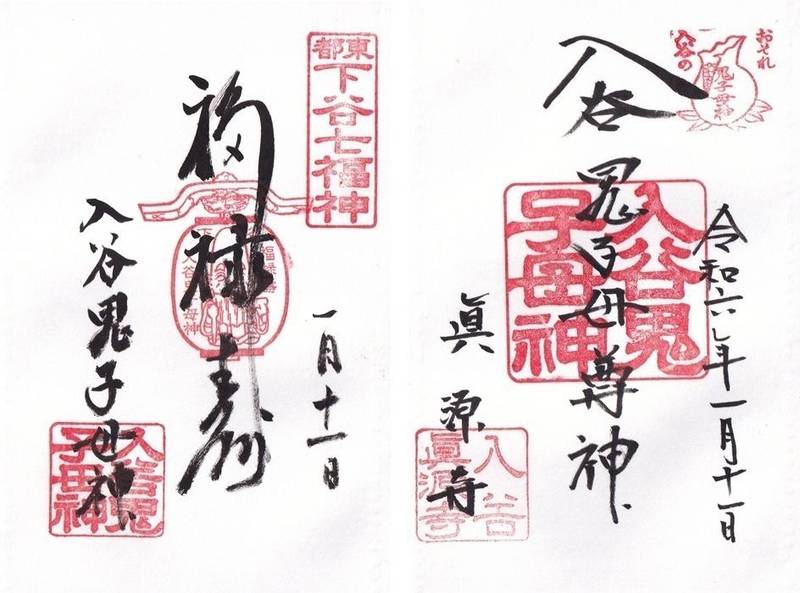 東都
下谷七福神
福禄寿
一月十一日
入谷鬼子母神
入谷鬼子母神
おそれ
入谷の
鬼子母神
令和六年一月十一日
入谷鬼子母尊神
入谷鬼子母神
眞源寺
入谷眞源寺